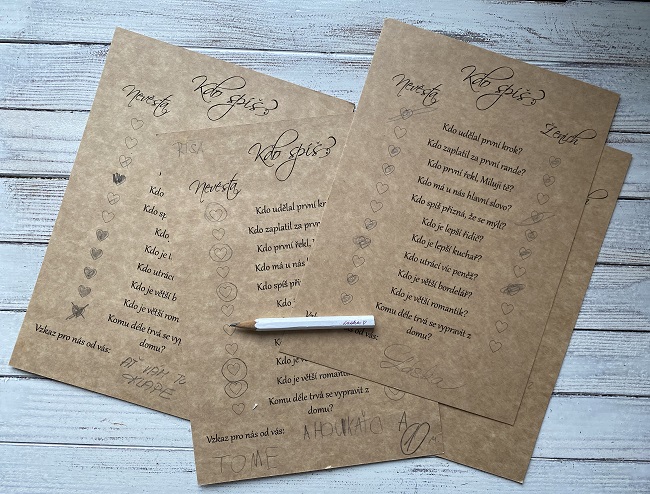 Kdo spíš?
Nevěsta
Kdo
Kdo sp
Kdo
Kdo je l
Kdo utrác
Kdo je větší b
Kdo je větší rom
Komu déle trvá se vyp
domu?
Vzkaz pro nás od vás:
AŤ VÁM TO
KLAPE
Kdo spíš?
Nevěsta
Kdo udělal první kr
Kdo zaplatil za prv
Kdo první řekl,
Kdo má u nás
Kdo spíš při
Kdo
K
Kdo je v
Kdo je větší romant
Komu déle trvá se vypravit z
domu?
Vzkaz pro nás od vás:
TOME
Kdo spíš?
Nevěsta
Ženich
Kdo udělal první krok?
Kdo zaplatil za první rande?
Kdo první řekl, Miluji tě?
Kdo má u nás hlavní slovo?
Kdo spíš přizná, že se mýlí?
Kdo je lepší řidič?
Kdo je lepší kuchař?
Kdo utrácí víc peněz?
Kdo je větší bordelář?
Kdo je větší romantik?
Komu déle trvá se vypravit z
domu?
od vás: